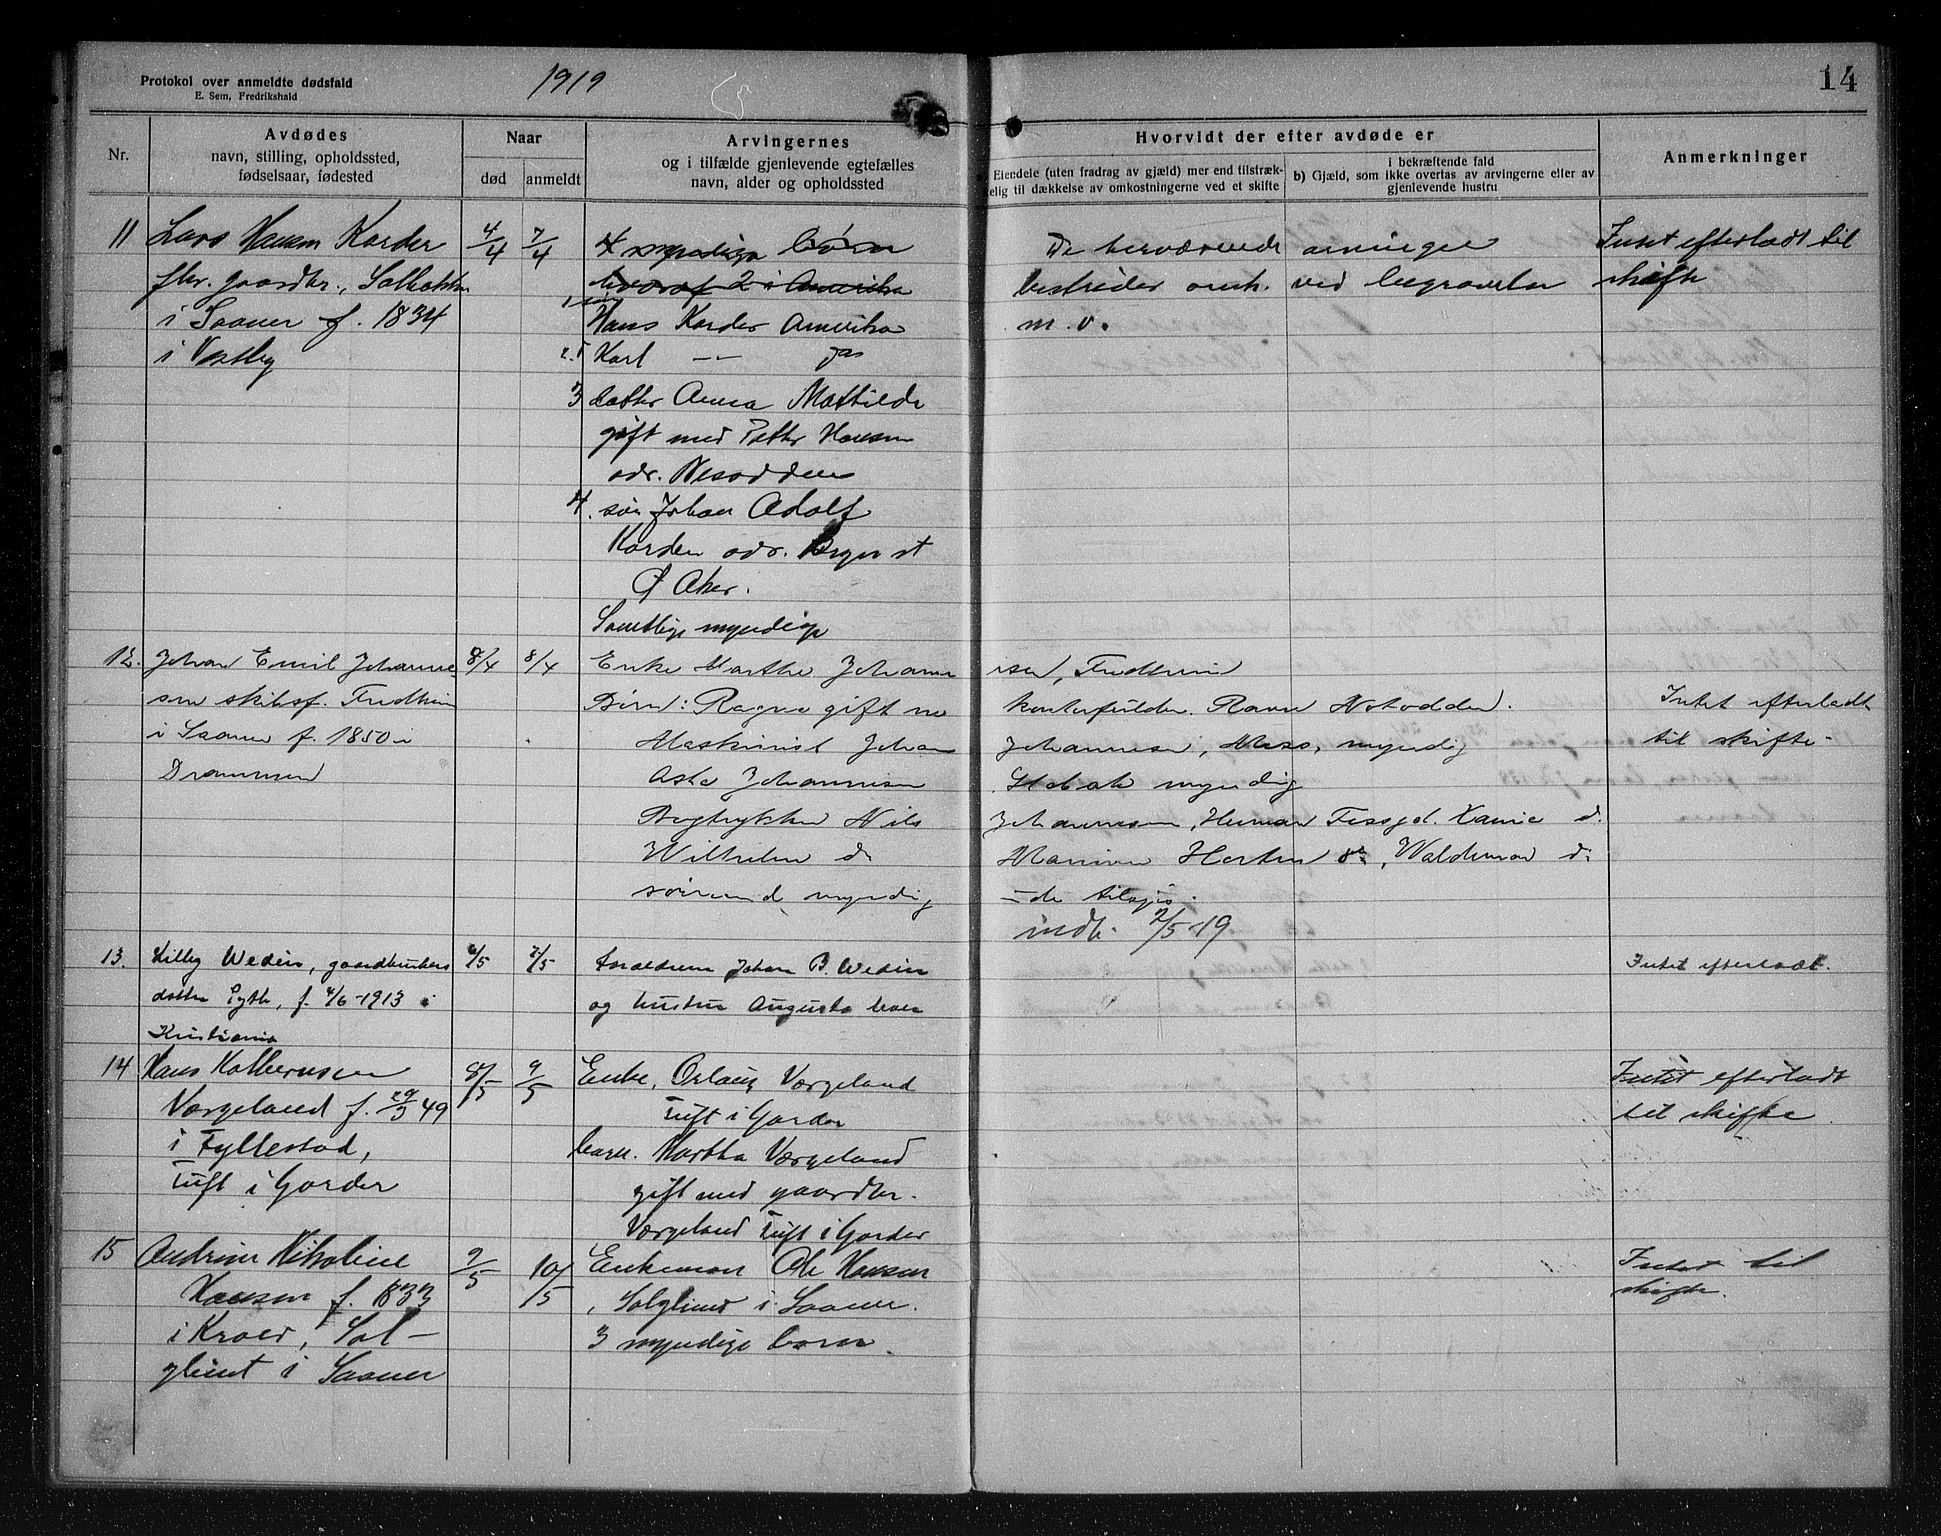 Protokol over anmeldte dødsfald
E. Sem, Fredrikshald
1919
14
Nr.
Avdødes
navn, stilling, opholdssted,
fødselsaar, fødested
Naar
død
anmeldt
Arvingernes
og i tilfælde gjenlevende egtefælles
navn, alder og opholdssted
Hvorvidt der efter avdøde er
Eiendele (uten fradrag av gjæld) mer end tilstræk-
kelig til dækkelse av omkostningerne ved et skifte
i bekræftende fald
b) Gjæld, som ikke overtas av arvingerne eller av
gjenlevende hustru
Anmerkninger
11
Lars Hansen Korder
fhv. gaardbr.,
i Saaner f. 1834
i Vestby
4/4
7/4
4 myndige børn
hvoraf 2 i Amerika
1 søn
Hans Korder Amerika
2. Karl — —
3 datter Anna Mathilde
gift med Petter Hansen
adr. Nesodden
4. søn Johan Adolf
Korden adr. Bryn st
Ø Aker.
Samtlige myndige
De herværende arvinger
bestrider omk. ved begravelsen
m. v.
Intet efterladt til
skifte
12.
Johan Emil Johanne-
sen skibsf. Fredheim
i Saaner f. 1850 i
Drammen
8/4
8/4
Enke Marthe Johanne
sen, Fredheim
Børn: Ragna gift m
Ravn Notodden.
Maskinist Johan
Johannesen, Moss, myndig
Asta Johannesen
myndig
Bogtrykker Nils
Johannesen, Herman
Wilhelm d:
Horten do, Waldemar d:
myndig
— do tilsjøs.
indk. 2/5-19
Intet efterladt
til skifte-
13.
Lilly Wedin, gaardbrukers
datter f. 4/6-1913 i
Kristiania
6/5
7/5
Forældrene Johan B. Wedin
og hustru Augusta lever
Intet efterladt.
14
Hans Kolbernsen
Værgeland f. 29/3 49
i Fyllestad,
Tuft i Garder
8/5
9/5
Enke, Værgeland
Tuft i Garder
barn. Martha Værgeland
gift med gaardbr.
Værgeland Tuft i Garder
Intet efterladt
til skifte
15
Andrine Nikoline
Hansen f. 1833
i Kroer, Sol-
glimt i Saaner
9/5
10/5
Enkeman Ole Hansen
, Solglimt i Saaner.
3 myndige børn.
Intet til
skifte.